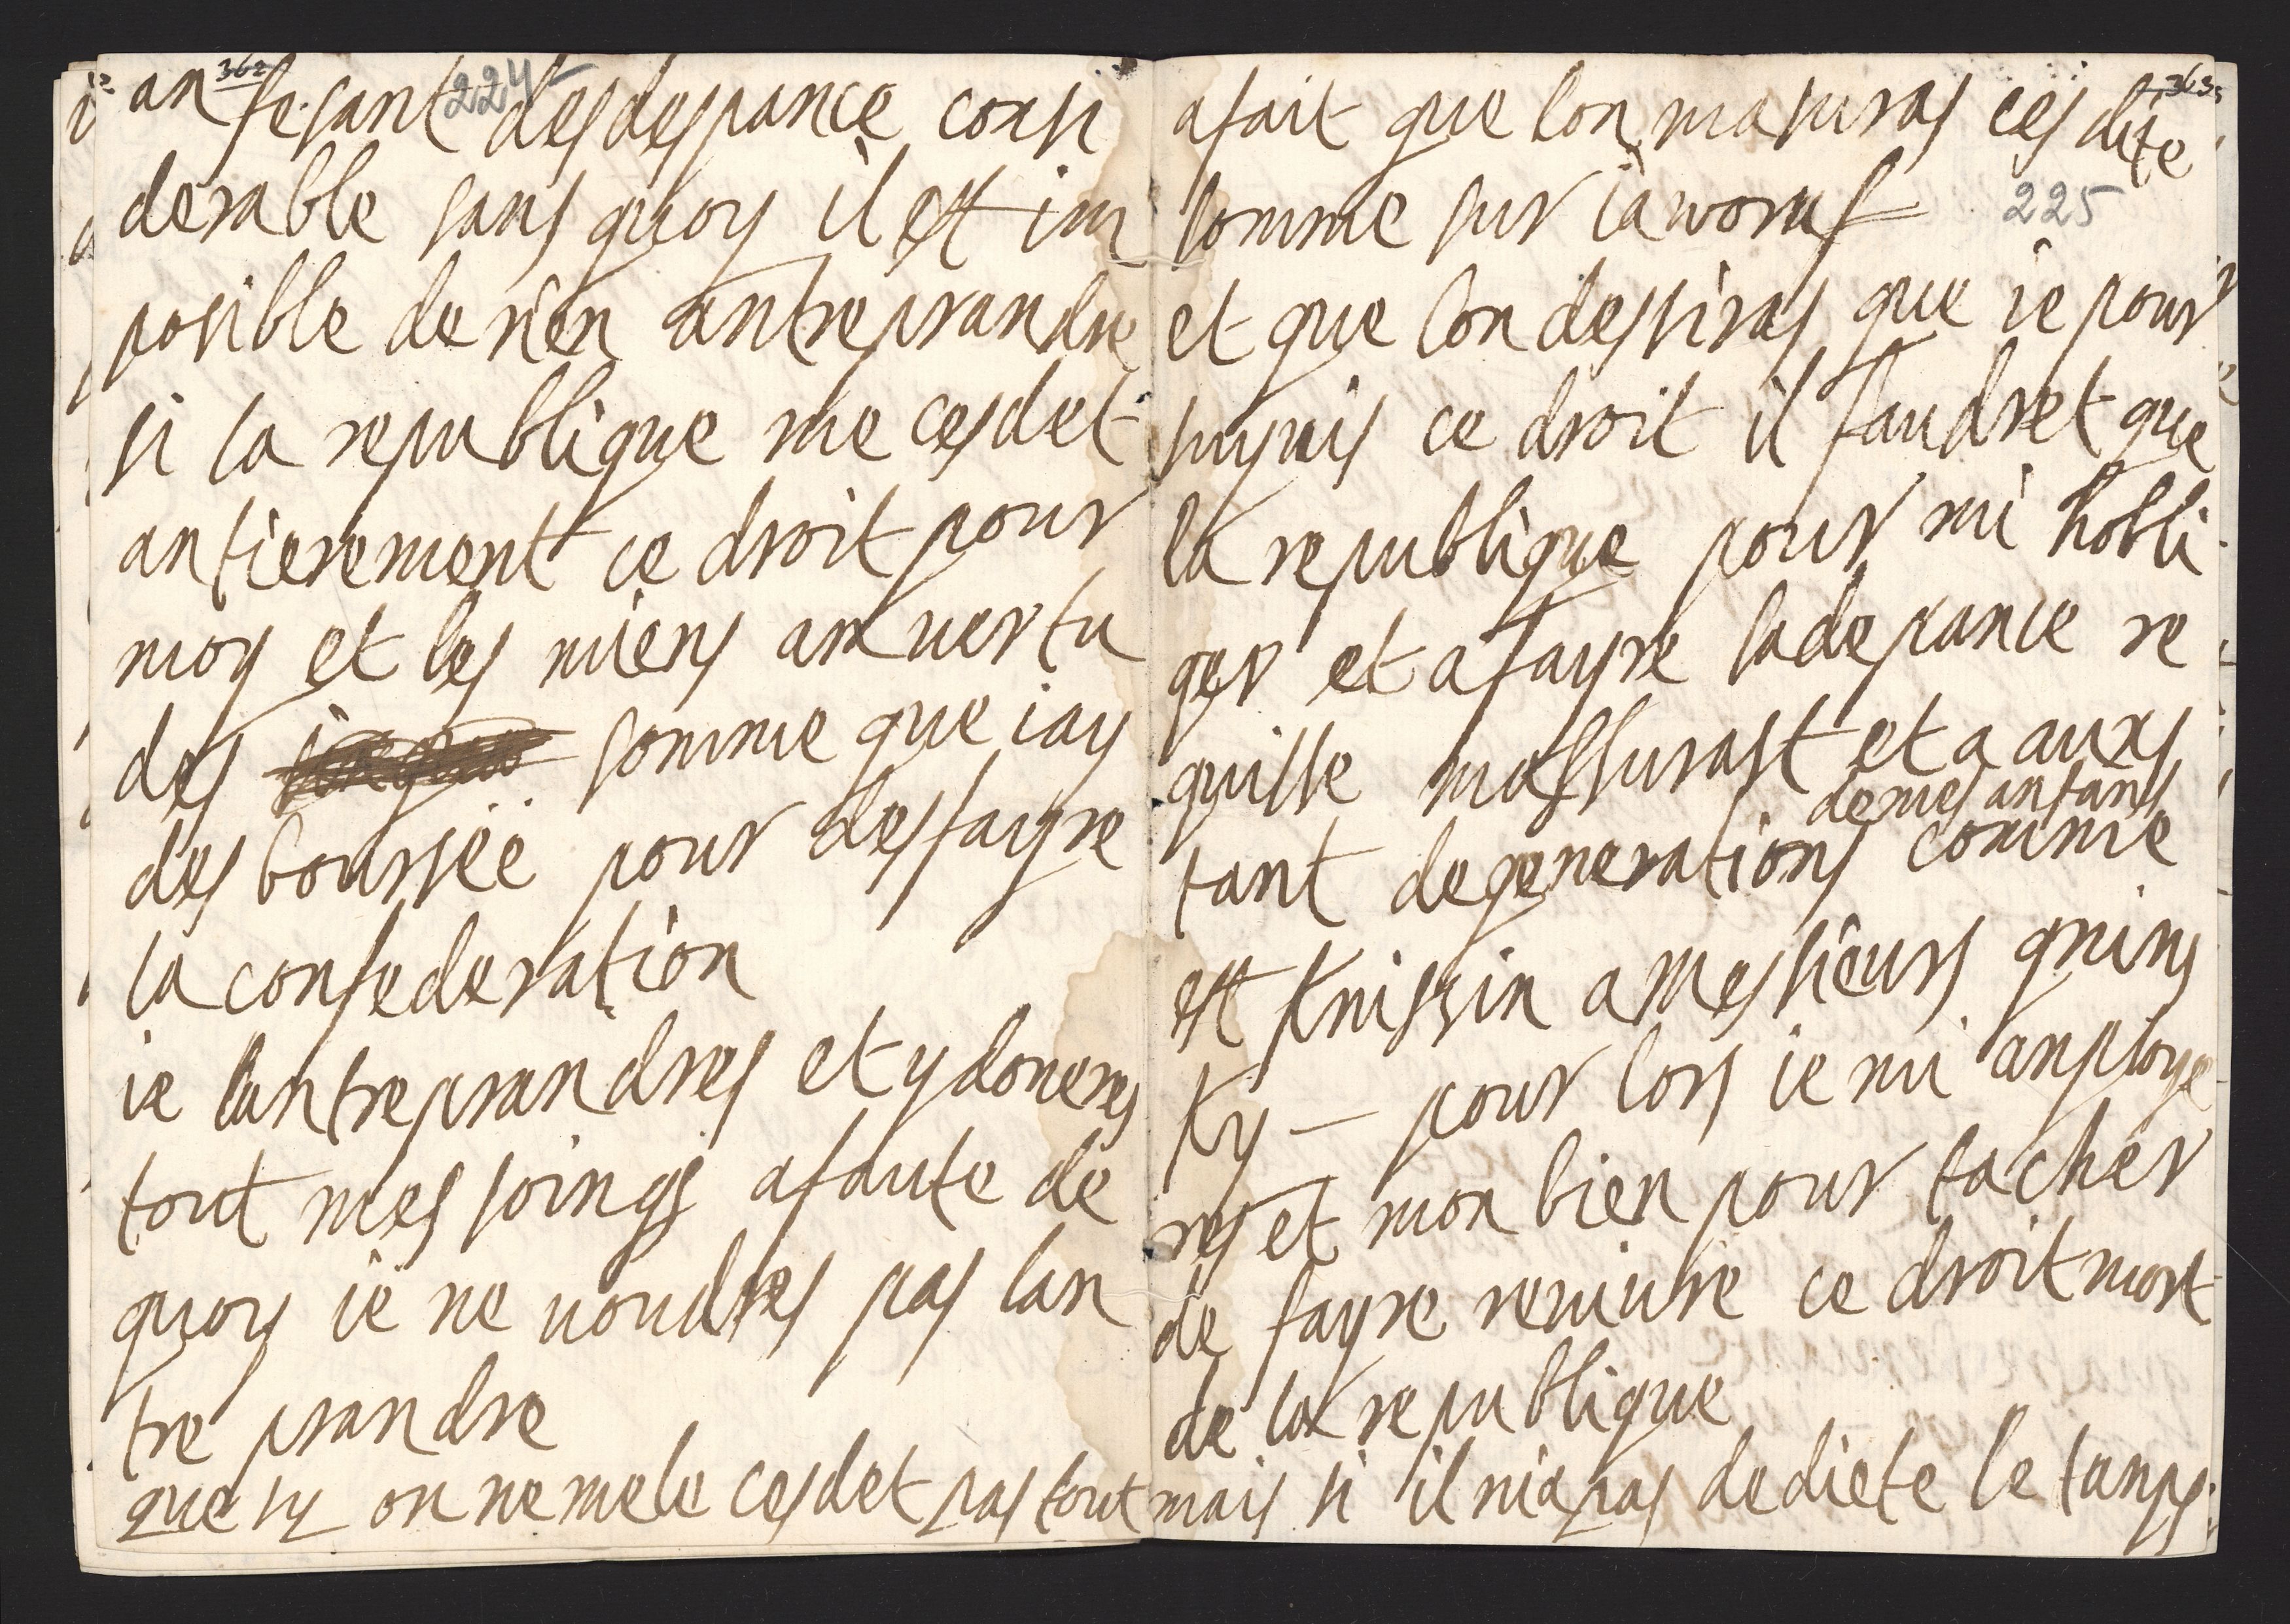 362
224
an fesant des despance consi
derable sans quoy il est im
posible de rien antreprandre
si la republique me cesdet
antierement ce droit pour
moy et les miens an vertu
des somme que iay
des boursëë pour desfayre
la confederation
ie lantreprandres et y doneres
tout mes soings afaute de
quoy ie ne voudres pas lan
tre prandre
que sy on ne me le cesdet pas tout
363
afait que lon masuras ces dite
somme sur iaworuf
225
et que lon desiras que ie pour
suyuis ce droit il faudret que
la republique pour mi hobli
ger et a fayre la depance re
quisse massurast et a auxs
de mes anfans
tant de generations comme
est Knissin a messieurs gnins
Ky — pour lors ie mi anploye
res et mon bien pour tacher
de fayre reuiure ce droit mort
de la republique
mais si il nia pas de diete le tamps